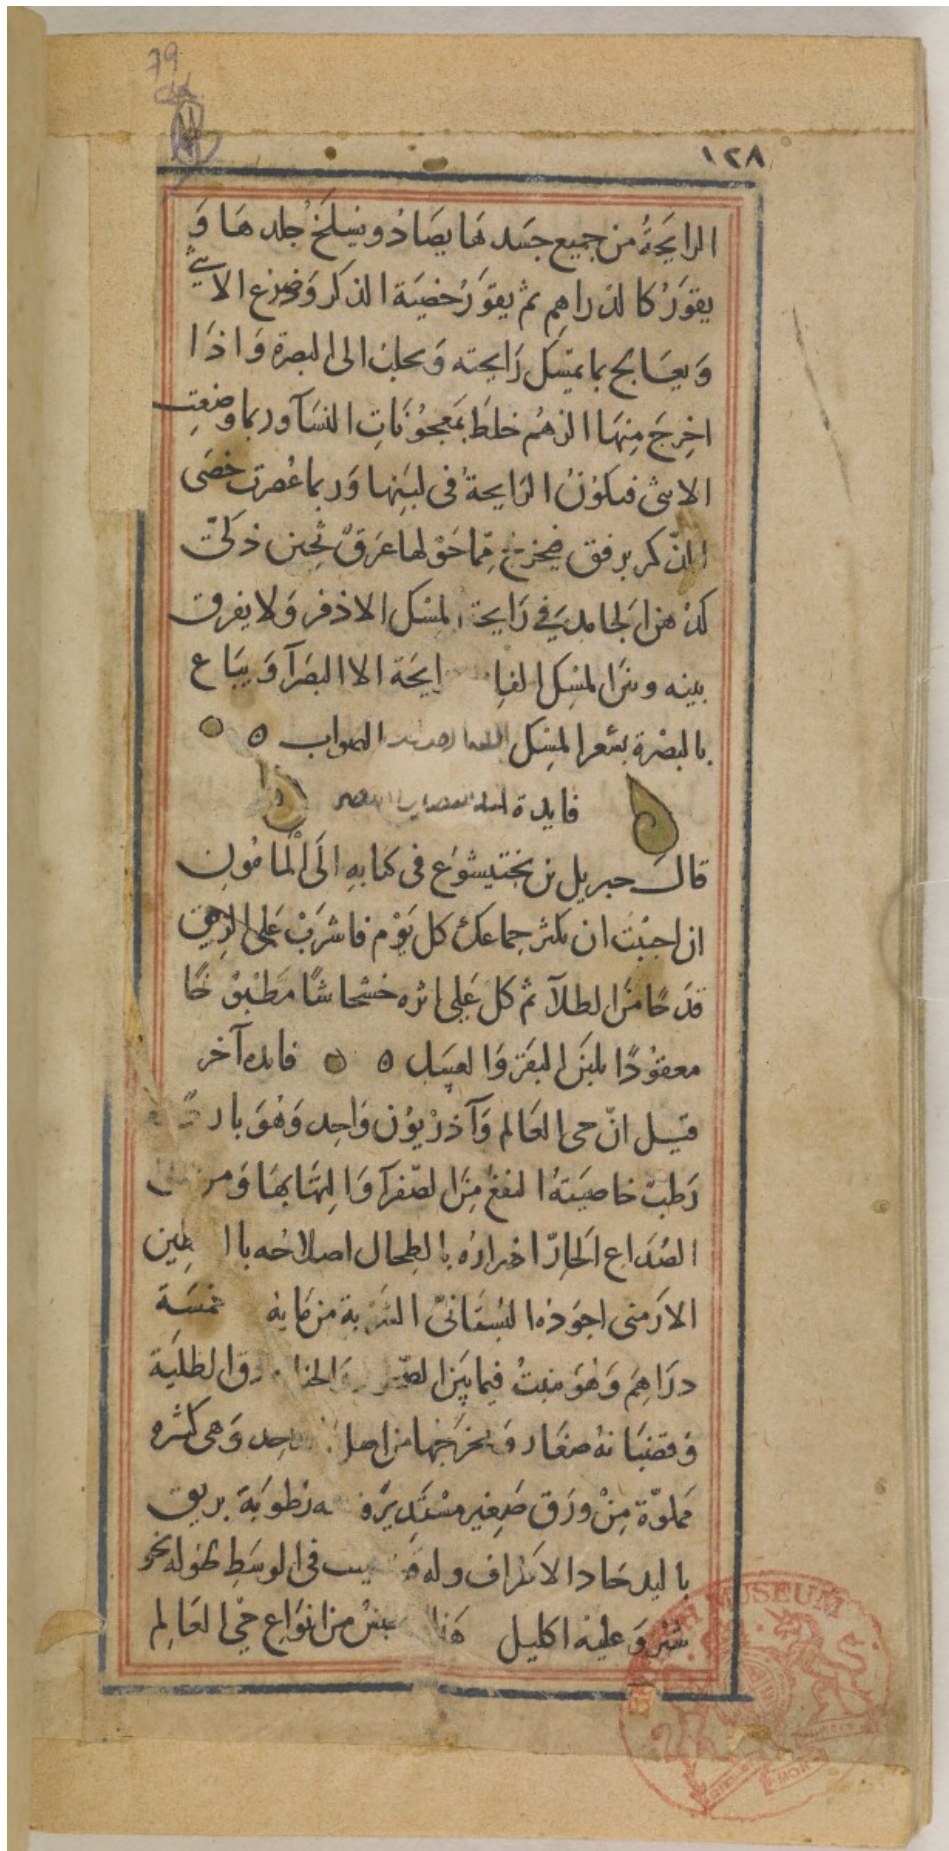 79
١٢٨
الرايحَةُ من جميع جسَدهَا يصَادُ ويسَلَخُ جلدهَا وَ
يقوَرُ كالدراهِم ثم يقوَرُ خصيَة الذكر وَضرع الانثي
وَيعَالج بما يمسَك رَايحته وَيجلب الى البصرة وَاذَا
اخرِجَ مِنهَا الزهُم خلَط بمَعجوُنَاتِ النسَآ وربما وضعت
الانثى فيكوْنُ الرَايحةُ فى لبَنِها وَربما عُصرت خصَى
الذّكر برفق فيخرج مِمّا حَوْلها عَرَقٌ ثخين ذكىّ
كدُهن الجامِدِ فِي رَايحة المسْك الاذفر وَلا يفرق
بينه وبين المسْك ايحَة الا البصَرآ وَيبَاع
بالبصْرة بسْعر المسْك الصواب
فايدة
قالَ جبريل بن بختيشوُع فى كتابهِ الَى الْمَامُون
ان احببْت ان يكثر جماعك كل يَوْم فاشرَبْ عَلى الريق
قدَحًا منَ الطلآ ثم كل عَلى اثره خشخاشًا مَطبْوْخًا
معقوُدًا بلبَن البقَر وَالعسَل فايده آخر
قيل انّ حى العَالم وَآذرْيوُن وَاحد وَهُوَ بارد
رَطبْ خاصيَتهُ النفعُ مِنَ الصّفرآ وَالِتهَابهَا وَمن
الصُدَاع الحَارّ اضرارُه بالطِحال اصلاحُه بالطِين
الارَمنى اجوَدهُ البُستَانىّ الشربة من مَايه خمسَة
درَاهِم وَهُوَ منبتُ فيما بَين الصّخور وَالخنادق الظليَة
وَقضبَانهُ صغار وَمخرَجهَا من اصل واحِد وَهى كثره
مَملوّة مِنْ ورَق صَغير مسْتَديرَة رُطوبَة يريق
باليد حَاد الاطراف وله قضيب فى الوسَطِ طوله نحو
شبْر وَعليهْ اكليل هَذا جنسْ من انوَاع حىّ العَالِم